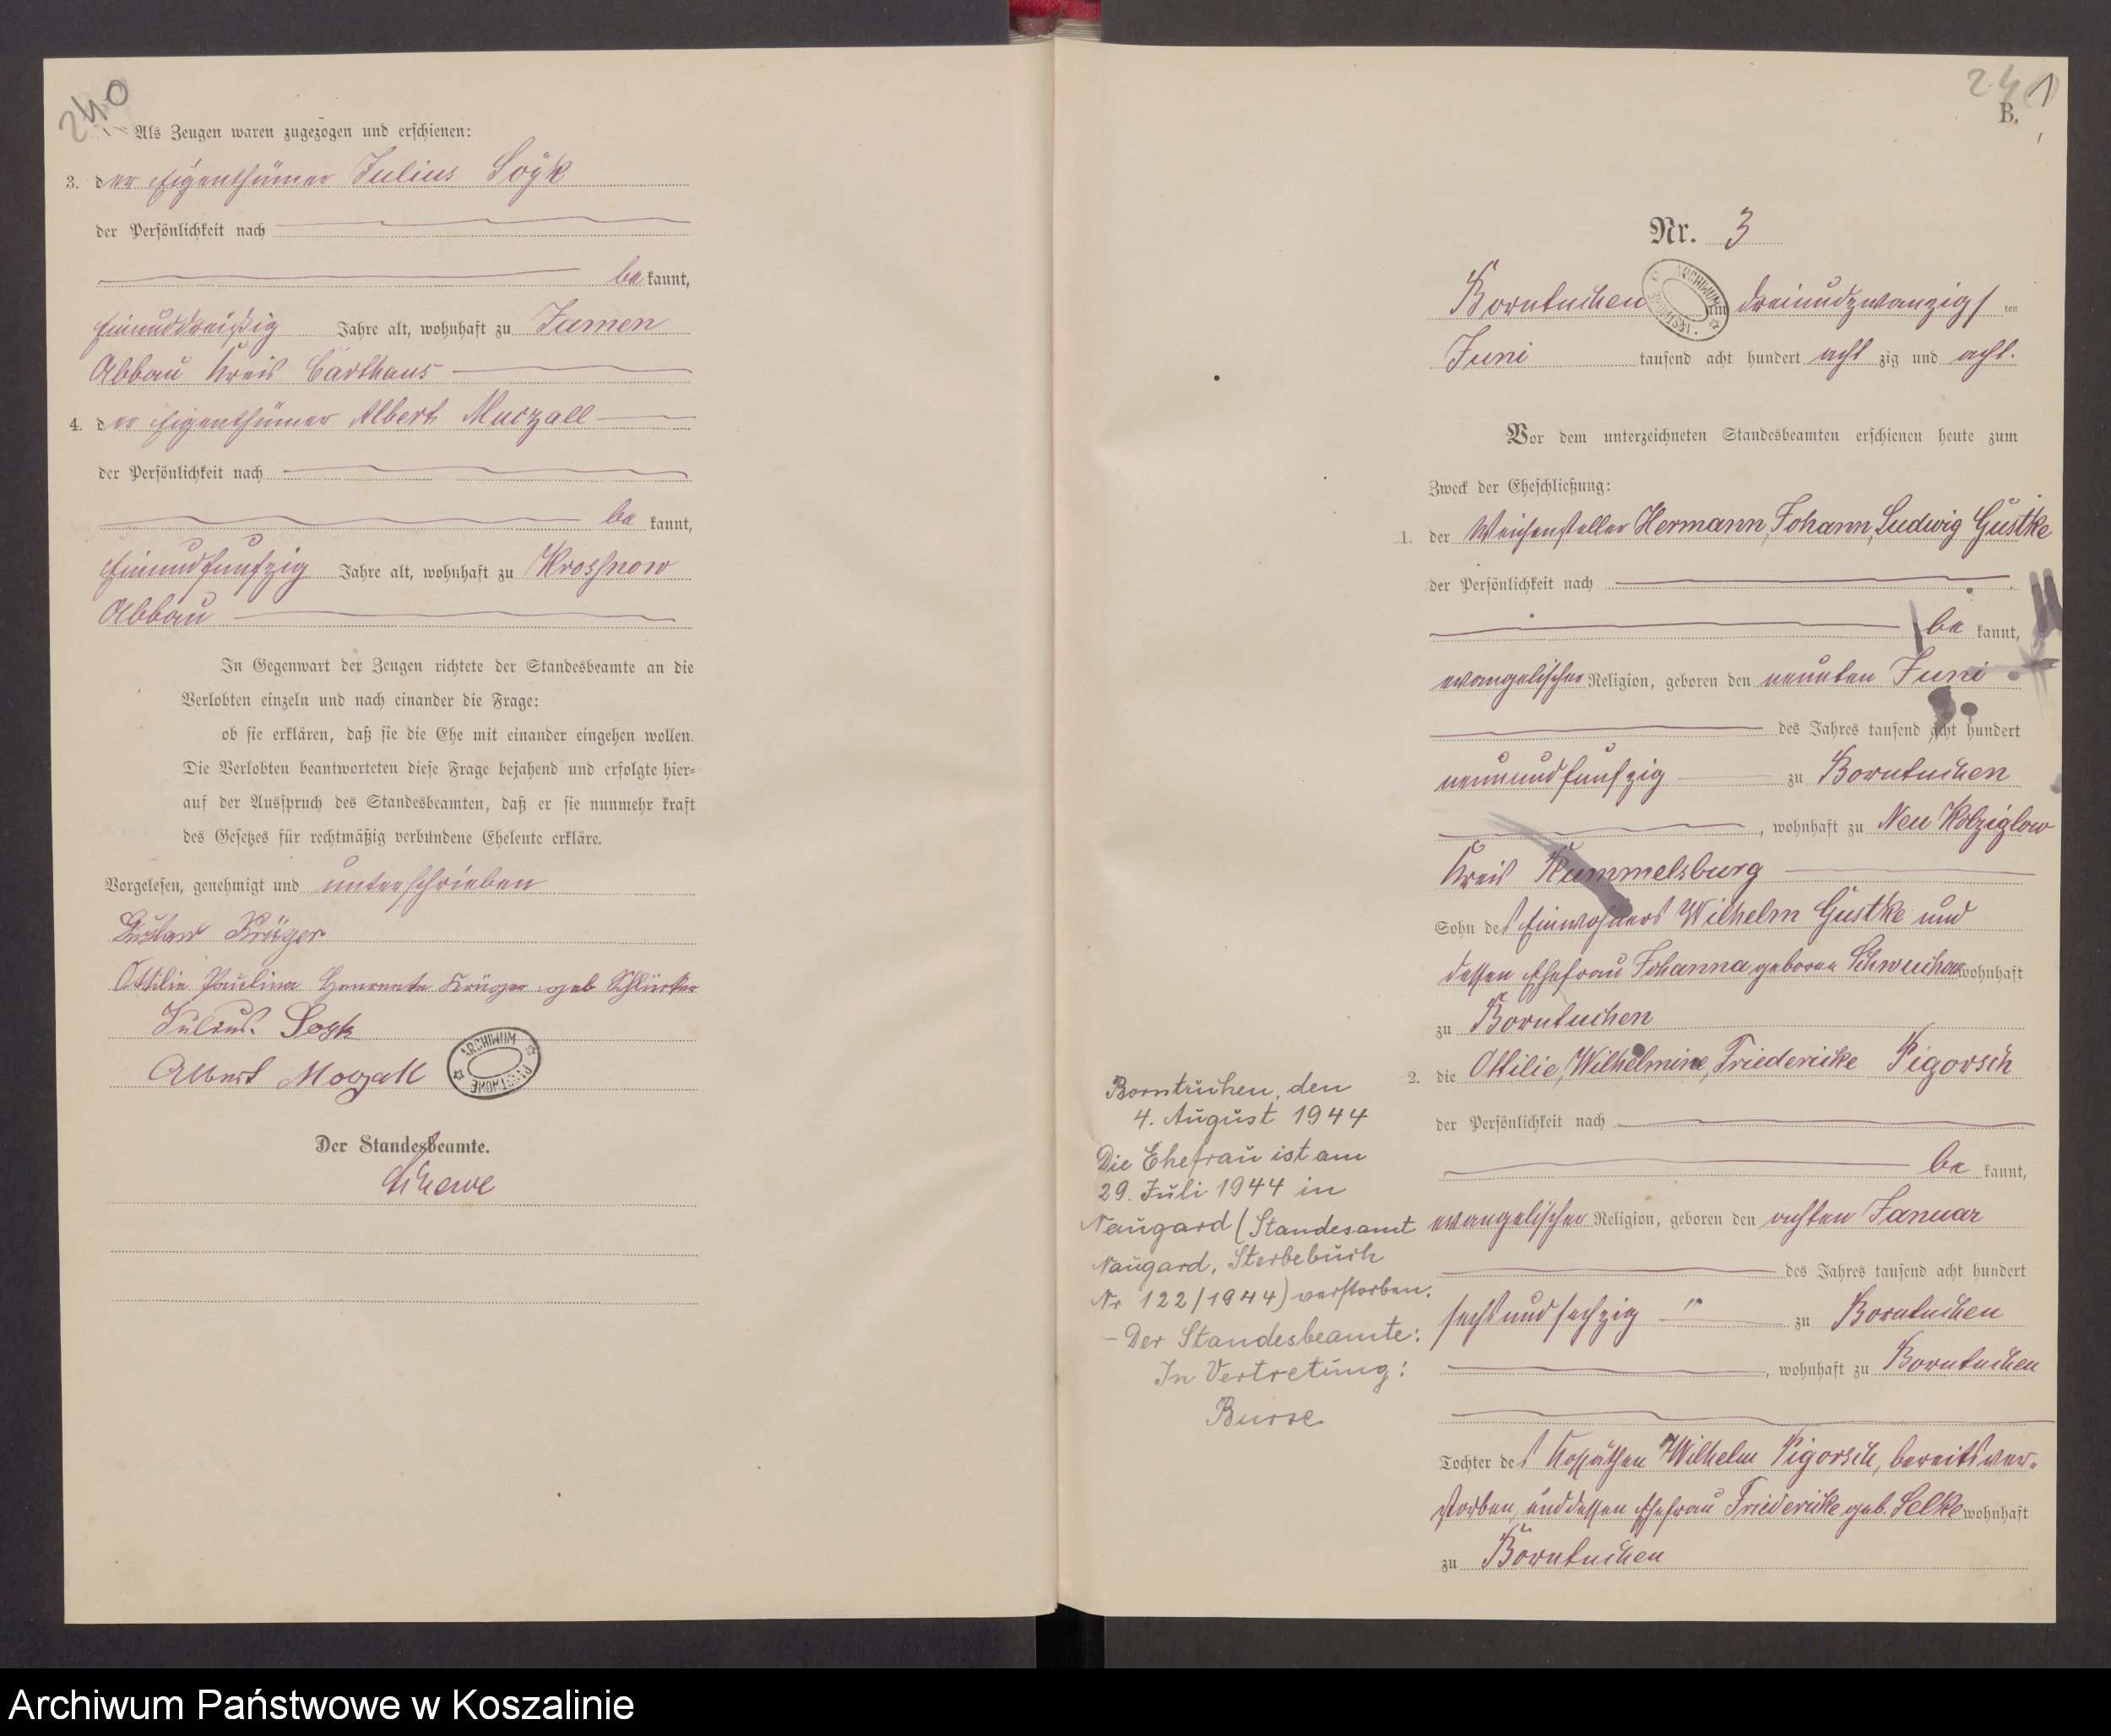 240
Als Zeugen waren zugezogen und erschienen:
3. der Eigenthümer Julius Soÿk
der Persönlichkeit nach
be kannt,
einunddreißig Jahre alt, wohnhaft zu Jamen
Abbau Kreis Carthaus
4. der Eigenthümer Albert Muczall
der Persönlichkeit nach
be kannt,
einundfunfzig Jahre alt, wohnhaft zu Krosnow
Abbau
In Gegenwart der Zeugen richtete der Standesbeamte an die
Verlobten einzeln und nach einander die Frage:
ob sie erklären, daß sie die Ehe mit einander eingehen wollen.
Die Verlobten beantworteten diese Frage bejahend und erfolgte hier-
auf der Ausspruch des Standesbeamten, daß er sie nunmehr kraft
des Gesetzes für rechtmäßig verbundene Eheleute erkläre.
Vorgelesen, genehmigt und unterschrieben
Gustav Krüger
Ottilie Paulina Krüger geb
Julius Soyk
Albert Mozall
ARCHIWUM
Der Standesbeamte.
Schewe
241
B.
Nr. 3
Borntuchen am dreiundzwanzigsten
ARCHIWUM
Juni tausend acht hundert acht zig und acht.
Vor dem unterzeichneten Standesbeamten erschienen heute zum
Zweck der Eheschließung:
1. der Weichensteller Hermann, Johann, Ludwig Gustke
der Persönlichkeit nach
be kannt,
evangelischer Religion, geboren den neunten Juni
des Jahres tausend acht hundert
neunundfunfzig zu Borntuchen
, wohnhaft zu Neu Kolziglow
Kreis Rummelsburg
Sohn des Einwohners Wilhelm Gustke und
dessen Ehefrau Johanna geborne Schwuchow wohnhaft
zu Borntuchen
2. die Ottilie, Wilhelmine, Friedericke Pigorsch
der Persönlichkeit nach
be kannt,
evangelischer Religion, geboren den achten Januar
des Jahres tausend acht hundert
sechsundsechzig zu Borntuchen
, wohnhaft zu Borntuchen
Tochter des Kossäthen Wilhelm Pigorsch, bereits ver-
storben, und dessen Ehefrau Friedericke geb. Selke wohnhaft
zu Borntuchen
Borntuchen, den
4. August 1944
Die Ehefrau ist am
29. Juli 1944 in
Naugard (Standesamt
Naugard, Sterbebuch
Nr 122/1944) verstorben.
- Der Standesbeamte:
In Vertretung:
Burse
Archiwum Państwowe w Koszalinie